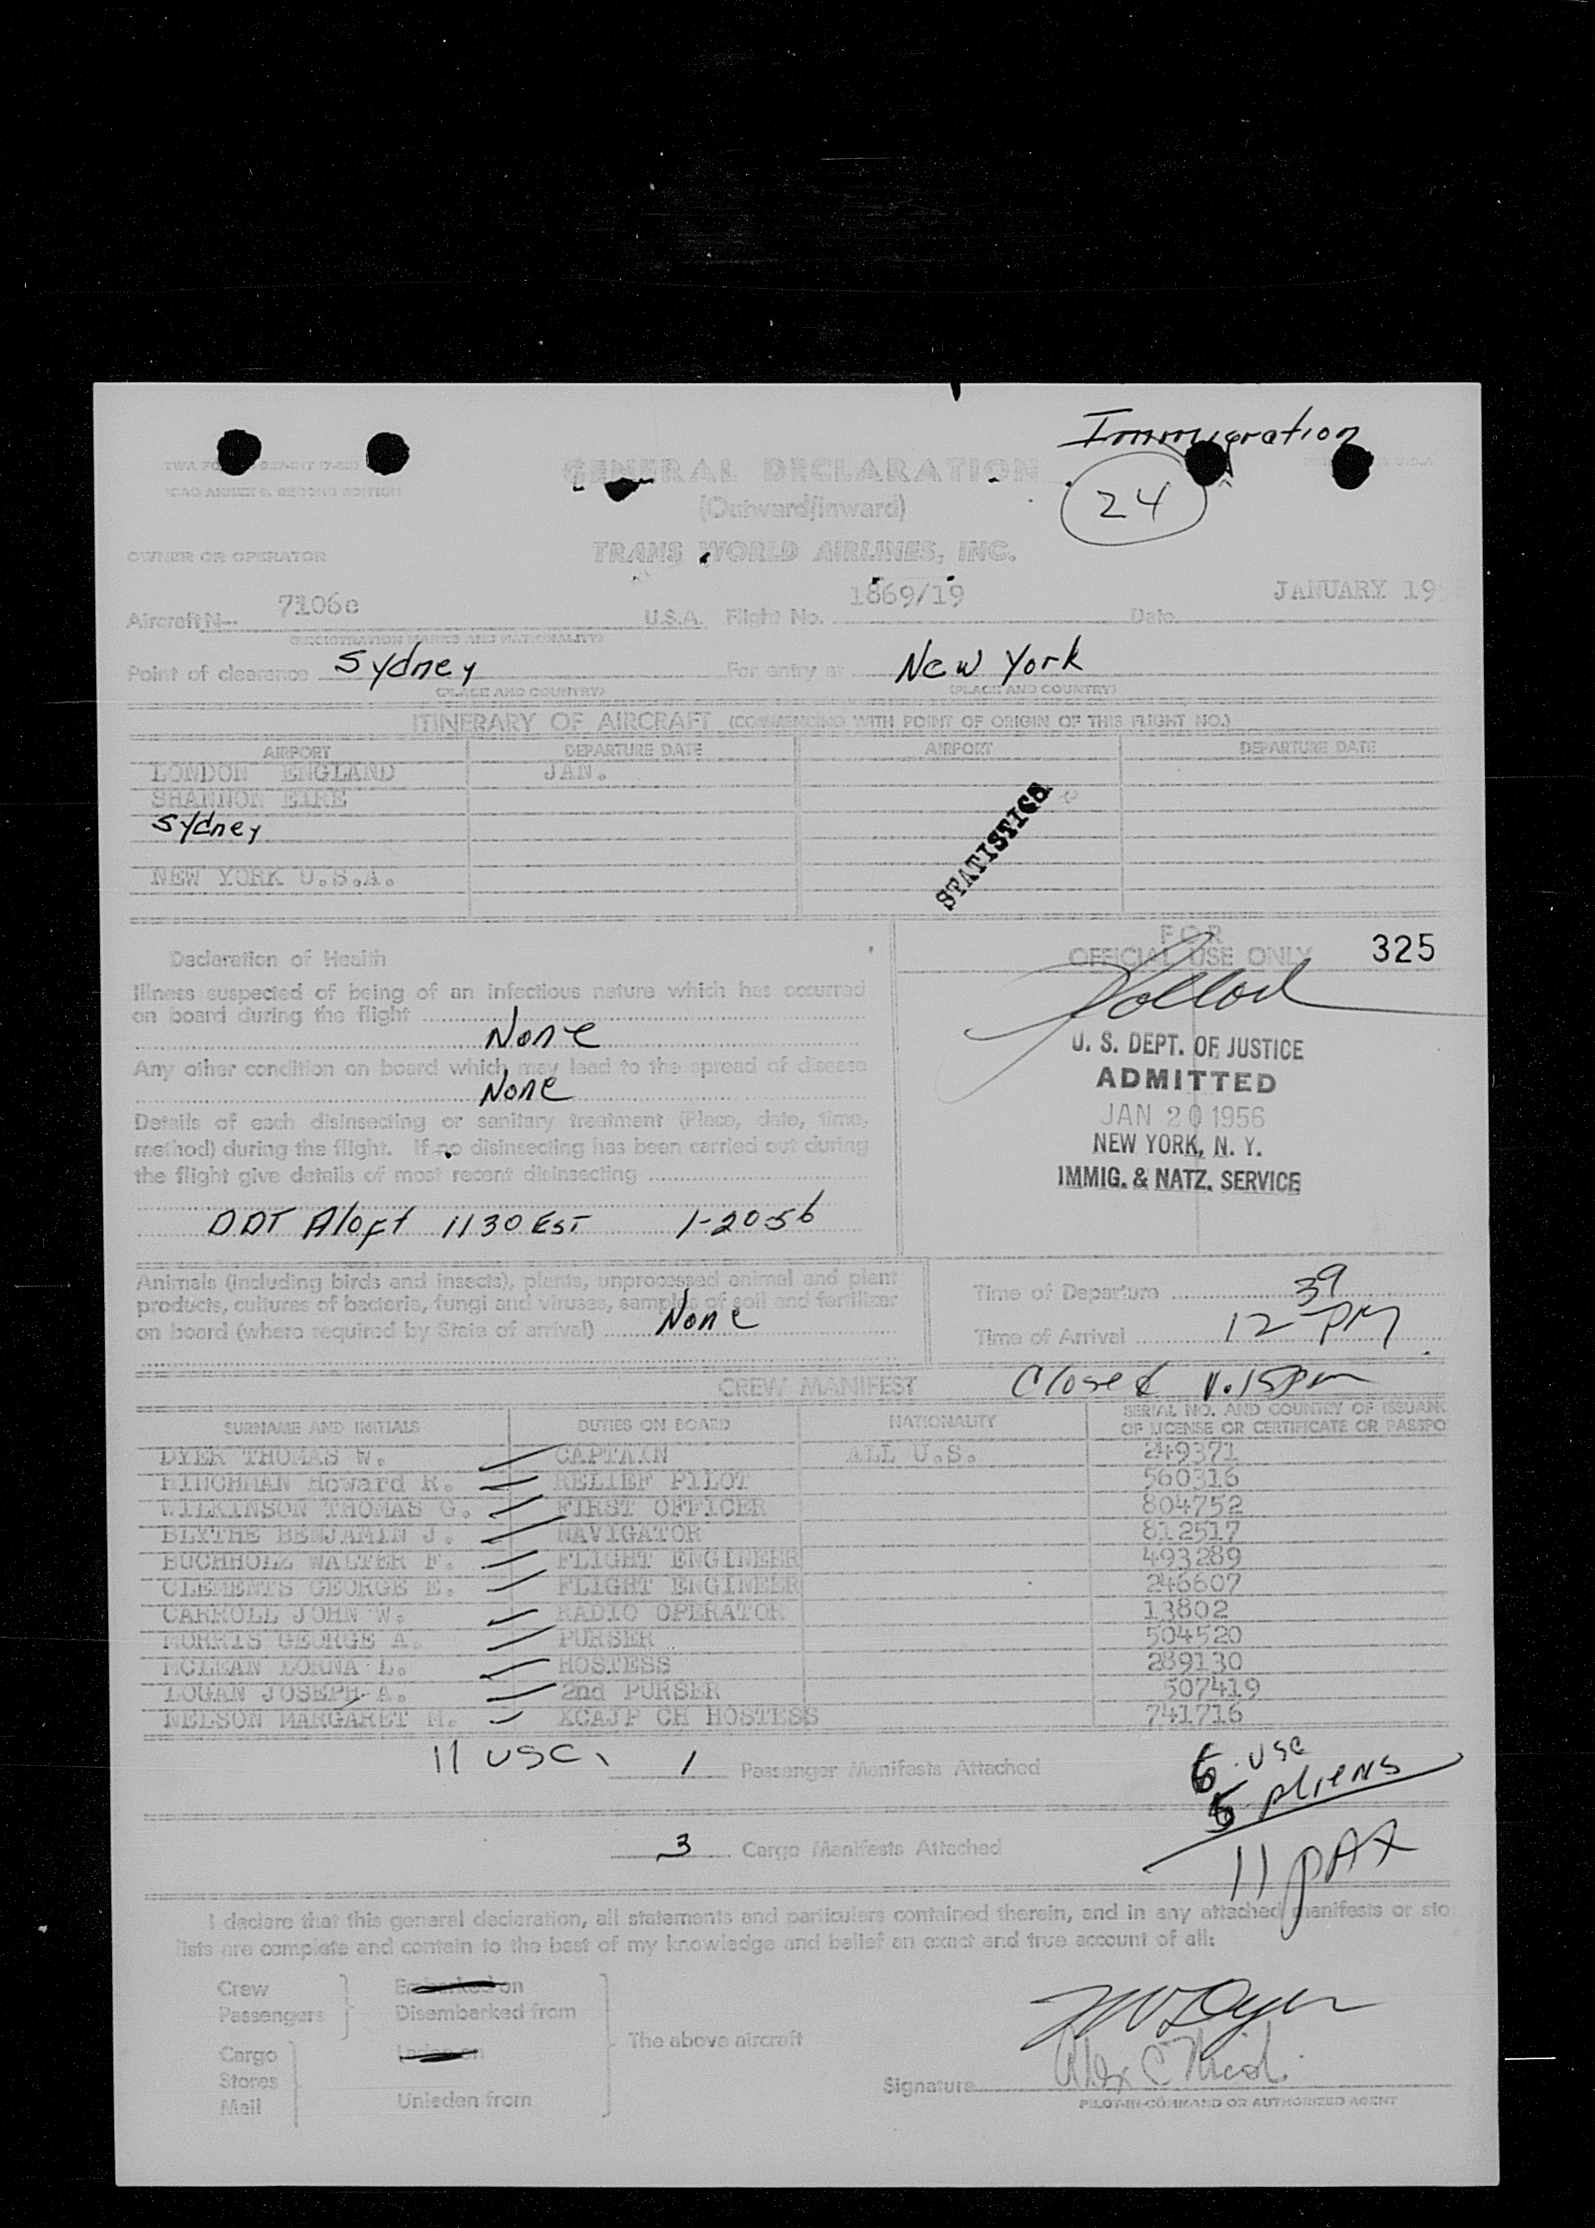 Immigration
24
GENERAL DECLARATION
(Outward/Inward)
ICAO ANNEX 9, SECOND EDITION
OWNER OR OPERATOR TRANS WORLD AIRLINES, INC.
Aircraft N-- 7106c U.S.A. Flight No. 1869/19 Date JANUARY 19
(REGISTRATION MARKS AND NATIONALITY)
Point of clearance Sydney For entry at New York
(PLACE AND COUNTRY) (PLACE AND COUNTRY)
ITINERARY OF AIRCRAFT (COMMENCING WITH POINT OF ORIGIN OF THIS FLIGHT NO.)
AIRPORT DEPARTURE DATE AIRPORT DEPARTURE DATE
LONDON ENGLAND JAN.
SHANNON EIRE
Sydney
NEW YORK U.S.A.
STATISTICS
Declaration of Health
Illness suspected of being of an infectious nature which has occurred
on board during the flight
None
Any other condition on board which may lead to the spread of disease
None
Details of each disinsecting or sanitary treatment (Place, date, time,
method) during the flight. If no disinsecting has been carried out during
the flight give details of most recent disinsecting
DDT Aloft 1130 EST 1-20-56
FOR
OFFICIAL USE ONLY 325
U. S. DEPT. OF JUSTICE
ADMITTED
JAN 20 1956
NEW YORK, N. Y.
IMMIG. & NATZ. SERVICE
Animals (including birds and insects), plants, unprocessed animal and plant
products, cultures of bacteria, fungi and viruses, samples of soil and fertilizer
on board (where required by State of arrival) None
Time of Departure
Time of Arrival 12 39 PM
CREW MANIFEST Closed 1.15pm
SURNAME AND INITIALS DUTIES ON BOARD NATIONALITY SERIAL NO. AND COUNTRY OF ISSUANC
OF LICENSE OR CERTIFICATE OR PASSPO
DYER THOMAS W. CAPTAIN ALL U.S. 249371
HINCHMAN Howard R. RELIEF PILOT 560316
WILKINSON THOMAS G. FIRST OFFICER 804752
BLYTHE BENJAMIN J. NAVIGATOR 812517
BUCHHOLZ WALTER F. FLIGHT ENGINEER 493289
CLEMENTS GEORGE E. FLIGHT ENGINEER 246607
CARROLL JOHN W. RADIO OPERATOR 13802
MORRIS GEORGE A. PURSER 504520
MCLEAN LORNA L. HOSTESS 289130
LOGAN JOSEPH A. 2nd PURSER 507419
NELSON MARGARET M. XCAJP CH HOSTESS 741716
11 USC 1 Passenger Manifests Attached
6 USC
5 Aliens
11 PAX
3 Cargo Manifests Attached
I declare that this general declaration, all statements and particulars contained therein, and in any attached manifests or sto
lists are complete and contain to the best of my knowledge and belief an exact and true account of all:
Crew Embarked on
Passengers Disembarked from
The above aircraft
Cargo Laden on
Stores
Mail Unladen from
TW Dyer
Signature
PILOT-IN-COMMAND OR AUTHORIZED AGENT